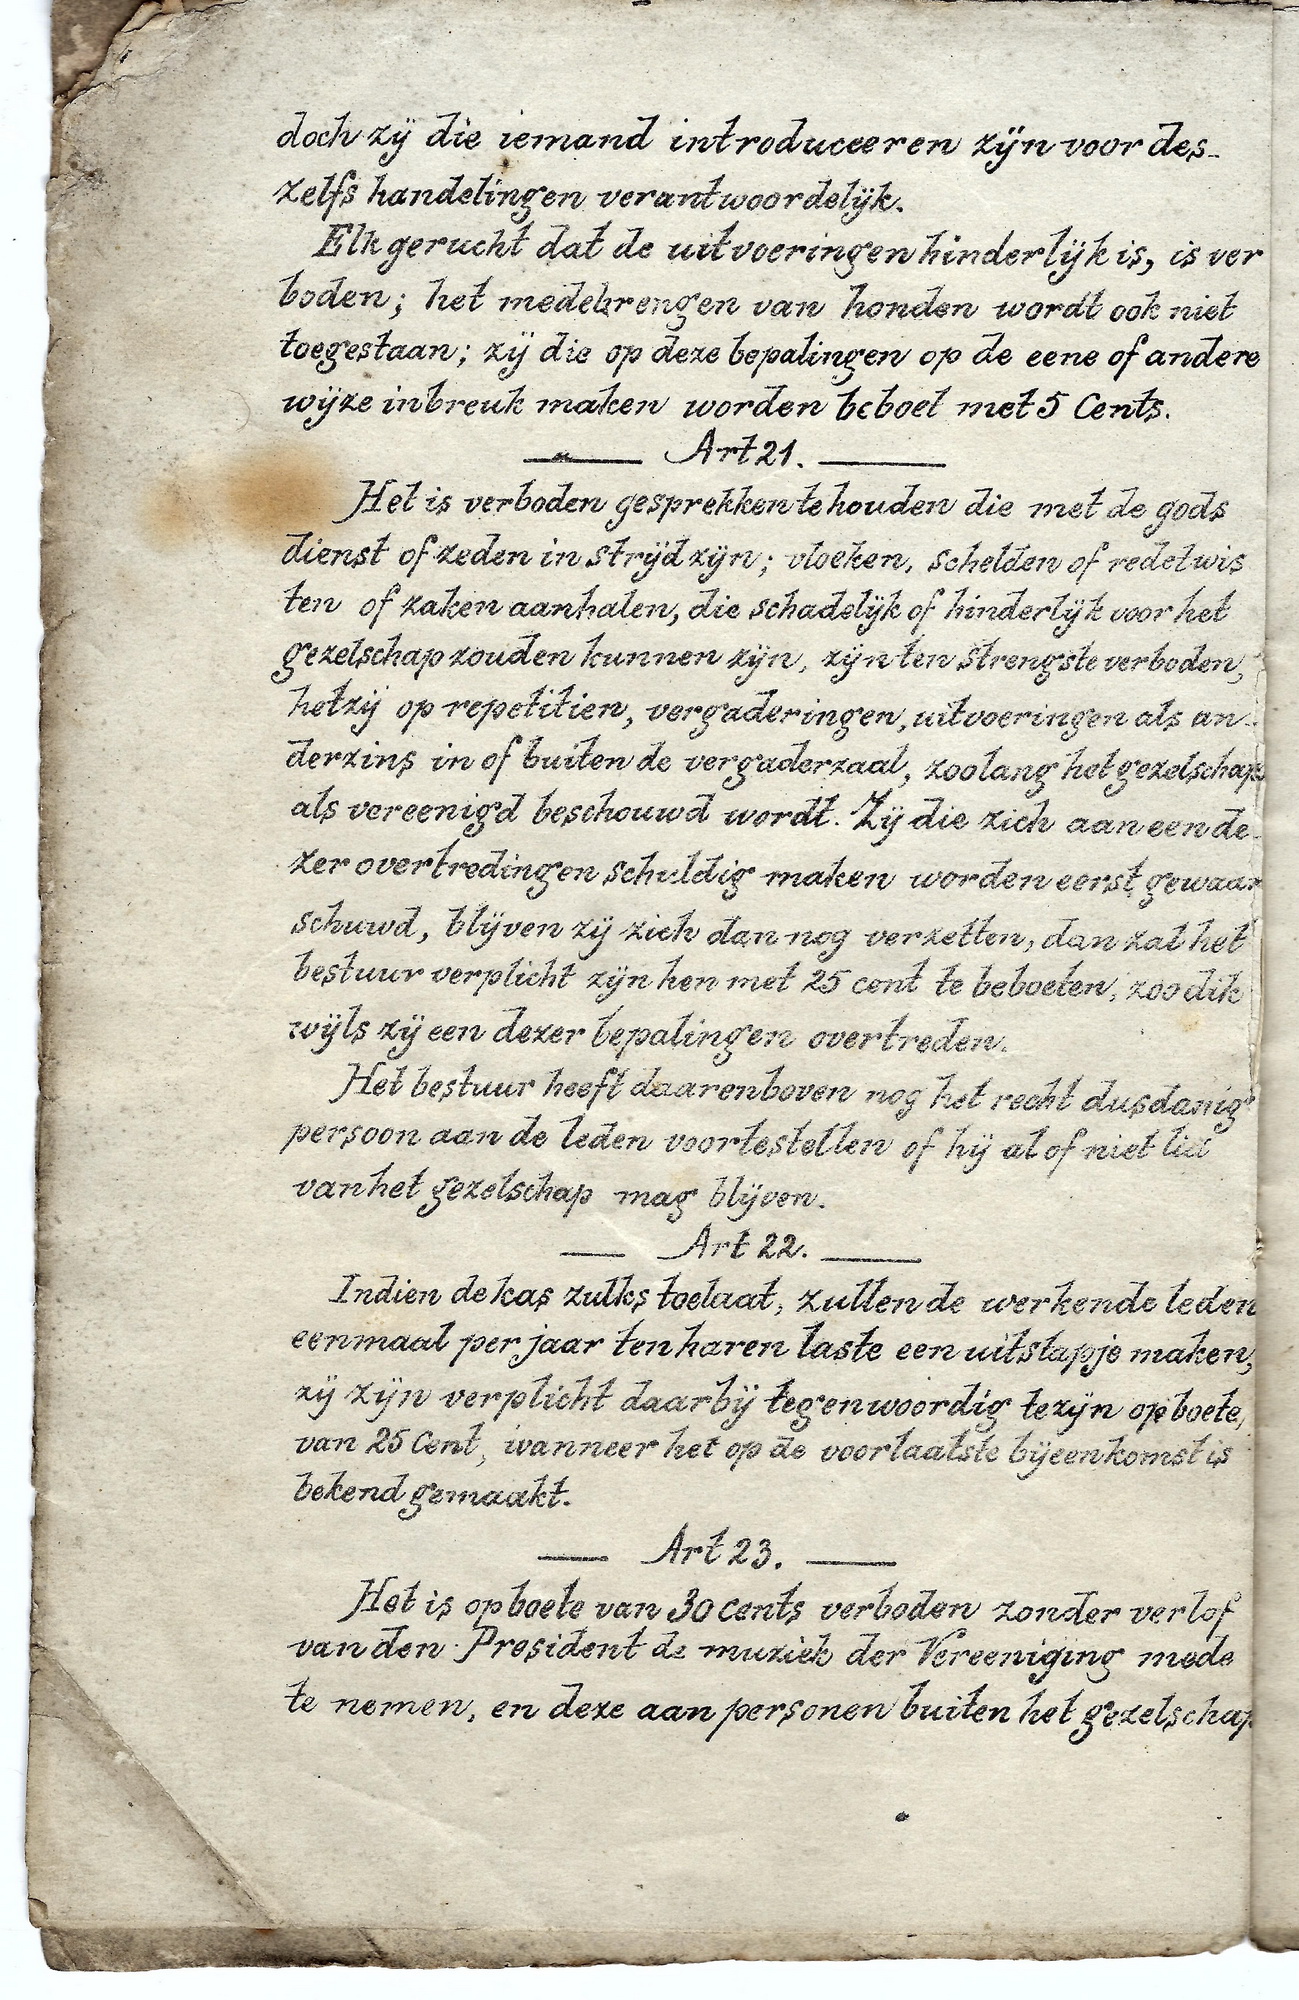 doch zij die iemand introduceeren zijn voor des-
zelfs handelingen verantwoordelijk.
Elk gerucht dat de uitvoeringen hinderlijk is, is ver
boden; het medebrengen van honden wordt ook niet
toegestaan; zij die op deze bepalingen op de eene of andere
wijze inbreuk maken worden beboet met 5 Cents.
Art 21.
Het is verboden gesprekken te houden die met de gods
dienst of zeden in strijd zijn; vloeken, schelden of redetwis
ten of zaken aanhalen, die schadelijk of hinderlijk voor het
gezelschap zouden kunnen zijn, zijn ten strengste verboden,
hetzij op repetitien, vergaderingen, uitvoeringen als an-
derzins in of buiten de vergaderzaal, zoolang het gezelschap
als vereenigd beschouwd wordt. Zij die zich aan een de-
zer overtredingen schuldig maken worden eerst gewaar
schuwd, blijven zij zich dan nog verzetten, dan zal het
bestuur verplicht zijn hen met 25 cent te beboeten, zoo dik
wijls zij een dezer bepalingen overtreden.
Het bestuur heeft daarenboven nog het recht dusdanig
persoon aan de leden voortestellen of hij al of niet lid
van het gezelschap mag blijven.
Art 22.
Indien de kas zulks toelaat, zullen de werkende leden
eenmaal per jaar ten haren laste een uitstapje maken,
zij zijn verplicht daarbij tegenwoordig te zijn op boete,
van 25 Cent, wanneer het op de voorlaatste bijeenkomst is
bekend gemaakt.
Art 23.
Het is op boete van 30 cents verboden zonder verlof
van den President de muziek der Vereeniging mede
te nemen, en deze aan personen buiten het gezelschap